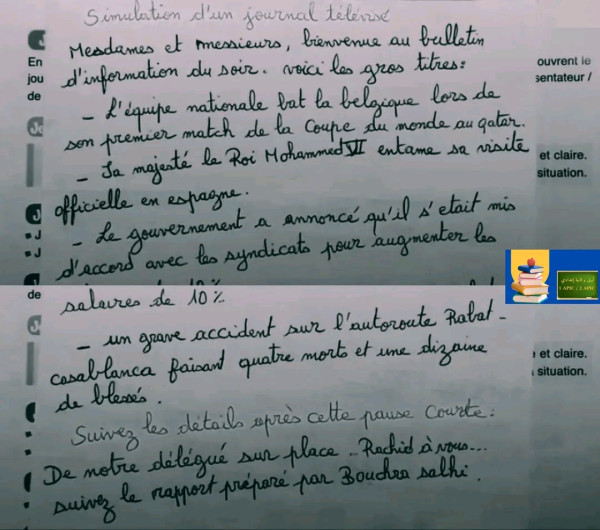 Simulation d'un journal télévisé
Mesdames et messieurs, bienvenue au bulletin
d'information du soir. voici les gros titres:
- L'équipe nationale bat la belgique lors de
son premier match de la Coupe du monde au qatar.
- Sa majesté le Roi Mohammed VII entame sa visite
officielle en espagne.
- Le gouvernement a annoncé qu'il s'etait mis
d'accord avec les syndicats pour augmenter les
salaires de 10%
- un grave accident sur l'autoroute Rabat-
casablanca faisant quatre morts et une dizaine
de blessés.
Suivez les détails après cette pause courte:
De notre délégué sur place.. Rachid à vous...
suivez le rapport préparé par Bouchra salhi.
En
jou
de
ouvrent le
sentateur /
et claire.
situation.
de
et claire.
situation.
1 APIC / 2 APIC